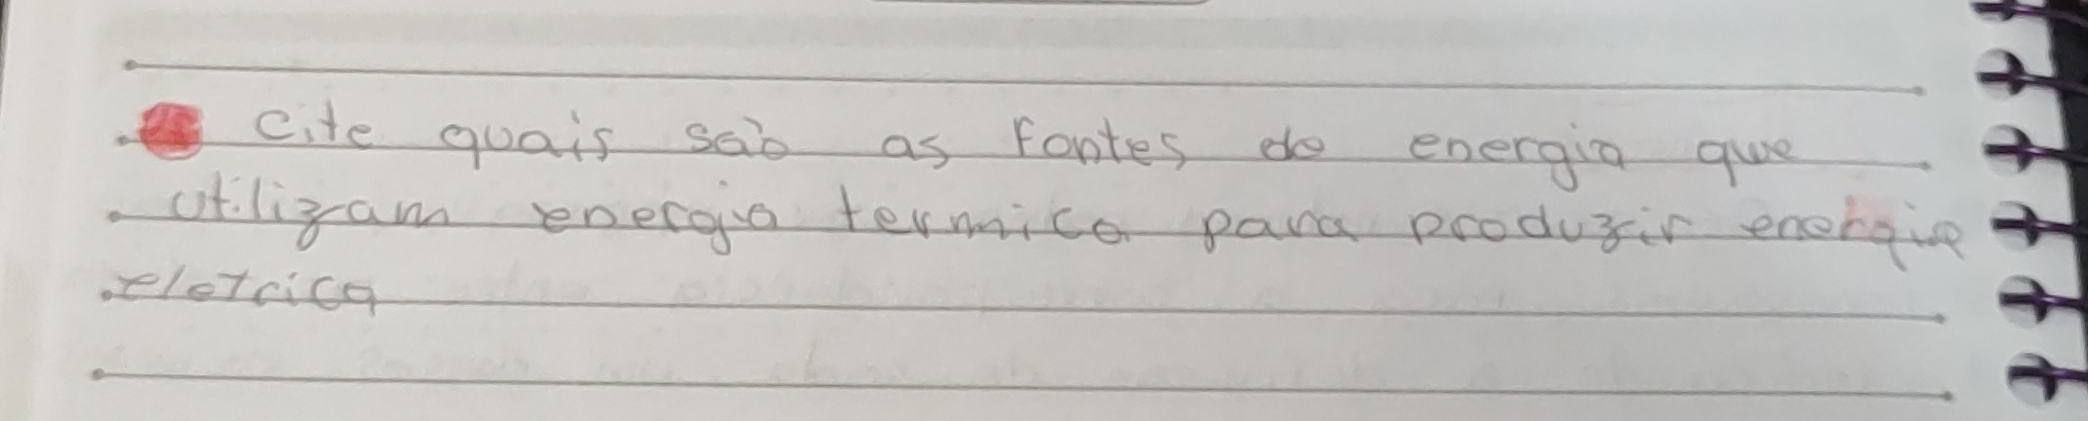 Cite quais são as fontes de energia que
utilizam energia termica para produzir energia
eletrica